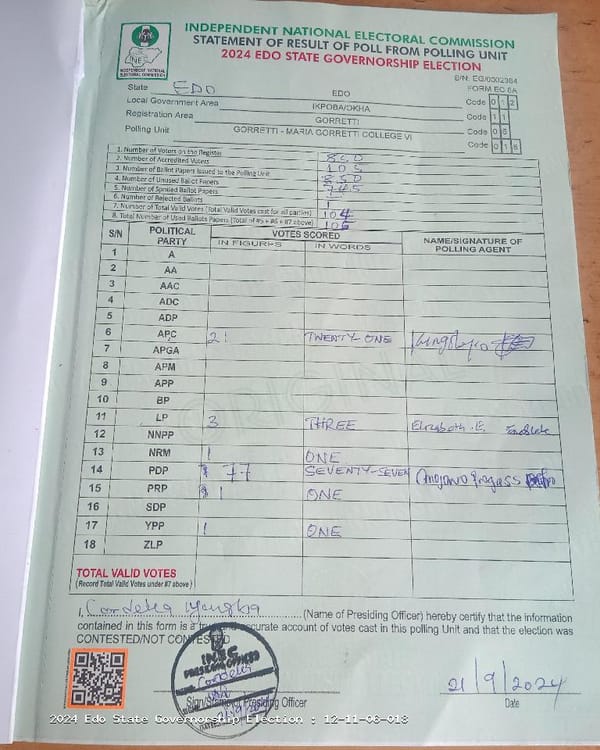 INDEPENDENT NATIONAL ELECTORAL COMMISSION
STATEMENT OF RESULT OF POLL FROM POLLING UNIT
2024 EDO STATE GOVERNORSHIP ELECTION
INDEPENDENT NATIONAL ELECTORAL COMMISSION
S/N: EG/0502384
FORM EC 8A
State EDO EDO Code 0 1 2
Local Government Area IKPOBA/OKHA Code 1 1
Registration Area GORRETTI Code 0 6
Polling Unit GORRETTI - MARIA GORRETTI COLLEGE VI Code 0 1 8
1. Number of Voters on the Register 850
2. Number of Accredited Voters 105
3. Number of Ballot Papers Issued to the Polling Unit 850
4. Number of Unused Ballot Papers 745
5. Number of Spoiled Ballot Papers
6. Number of Rejected Ballots 1
7. Number of Total Valid Votes (Total Valid Votes cast for all parties) 104
8. Total Number of Used Ballots Papers (Total of #5 + #6 + #7 above)
S/N POLITICAL PARTY VOTES SCORED NAME/SIGNATURE OF POLLING AGENT
IN FIGURES IN WORDS
1 A
2 AA
3 AAC
4 ADC
5 ADP
6 APC 21 TWENTY-ONE
7 APGA
8 APM
9 APP
10 BP
11 LP 3 THREE Elizabeth .E.
12 NNPP
13 NRM 1 ONE
14 PDP 77 SEVENTY-SEVEN
15 PRP 1 ONE
16 SDP
17 YPP 1 ONE
18 ZLP
TOTAL VALID VOTES
(Record Total Valid Votes under #7 above)
I, (Name of Presiding Officer) hereby certify that the information
contained in this form is a accurate account of votes cast in this polling Unit and that the election was
CONTESTED/NOT CONTESTED
INEC
PRESIDING OFFICER
Presiding Officer
21/9/2024
Date
2024 Edo State Governorship Election : 12-11-06-018